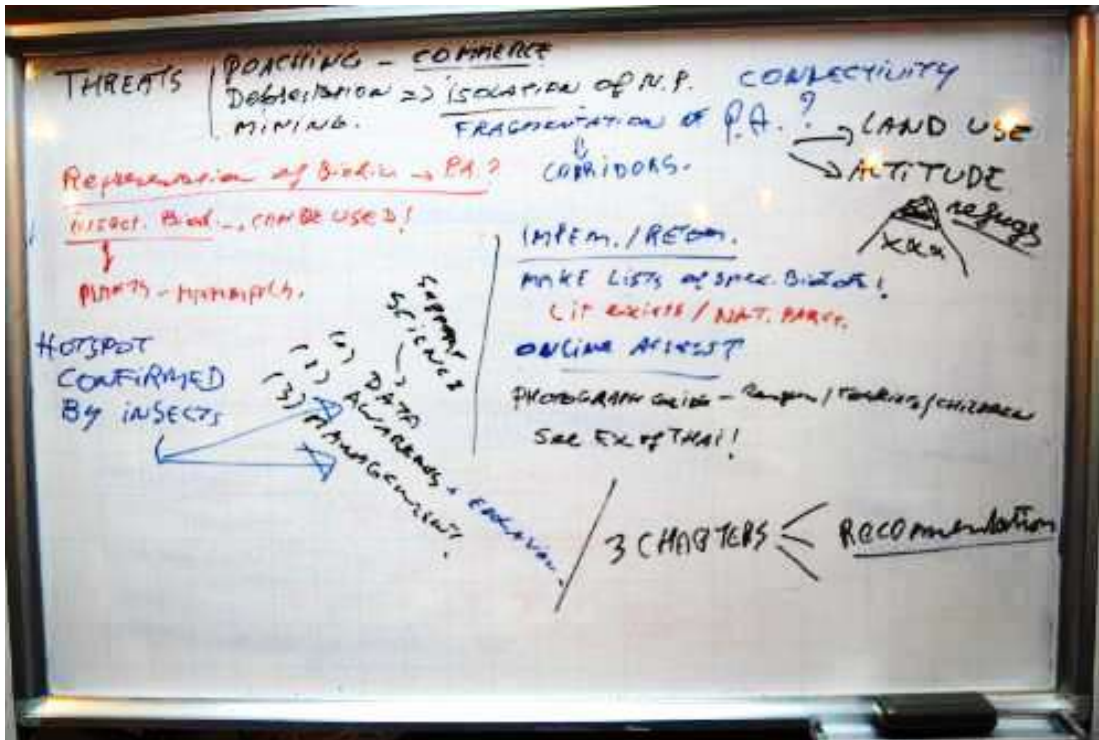 THREATS
POACHING - COMMERCE
Deforestation => isolation of N.P.
MINING.
FRAGMENTATION of P.A. ?
CONNECTIVITY
→ LAND USE
→ ALTITUDE
refuge
xxx
CORRIDORS.
Representation of Biodiv → P.A.?
insect. Biod → CAN BE USED!
PLANTS - MAMMALS.
HOTSPOT
CONFIRMED
By iNSECTS
SUPPORT
SCIENCE
(1) DATA
(2) AWARENESS + EDUCATION.
(3) MANAGEMENT!
IMPLEM./RECOM.
MAKE LISTS of spec.
Lit exists / NAT. PARCS.
ONLINE
PHOTOGRAPH GUIDE - Rangers / TOURISTS / CHILDREN
See Ex of THAI!
3 CHAPTERS
RECOMMENDATION